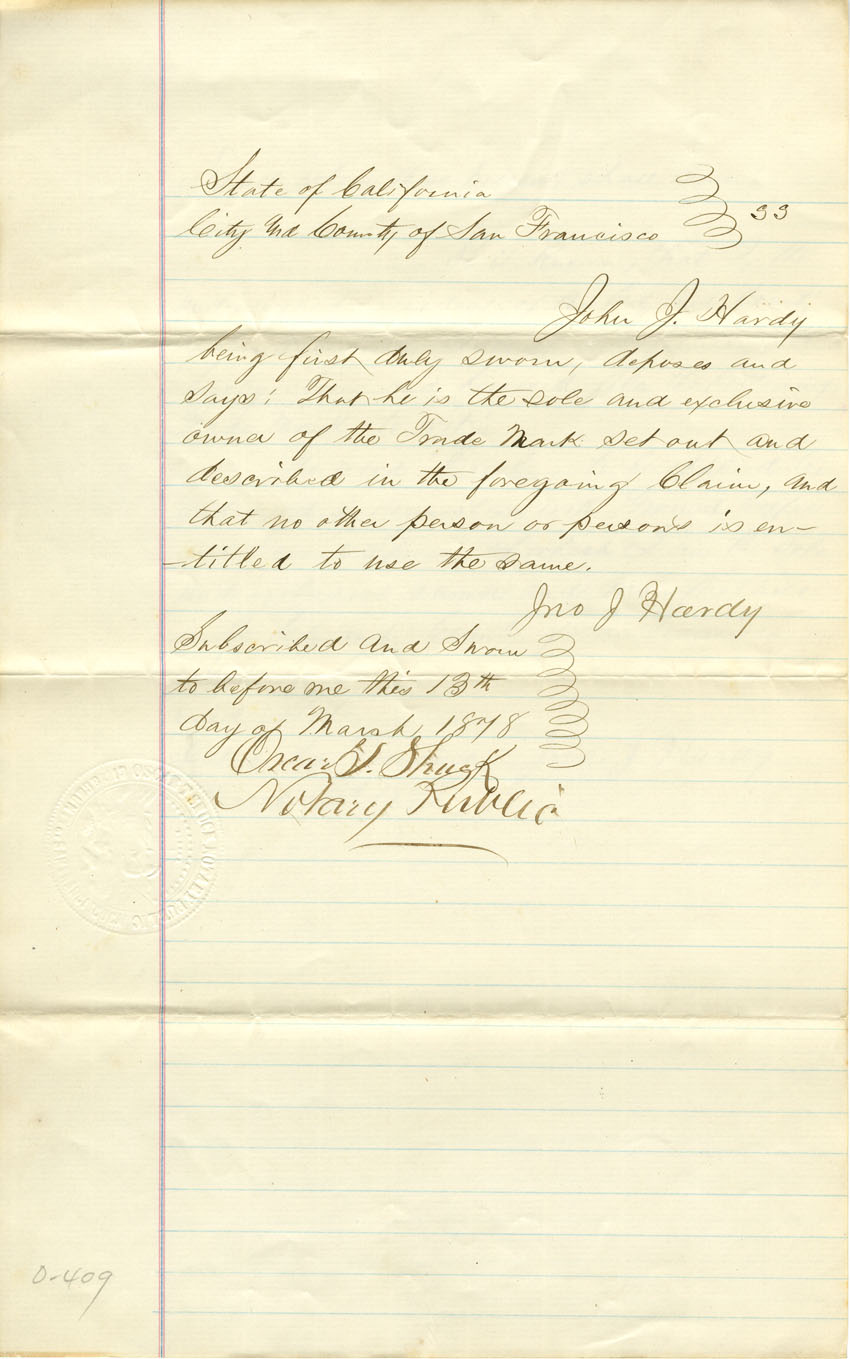 State of California
City and County of San Francisco } ss
John J. Hardy
being first duly sworn, deposes and
says: That he is the sole and exclusive
owner of the Trade Mark set out and
described in the foregoing Claim, and
that no other person or persons is en-
-titled to use the same.
Jno J Hardy
Subscribed and Sworn
to before me this 13th
day of March 1878
Oscar T. Shuck
Notary Public
0-409